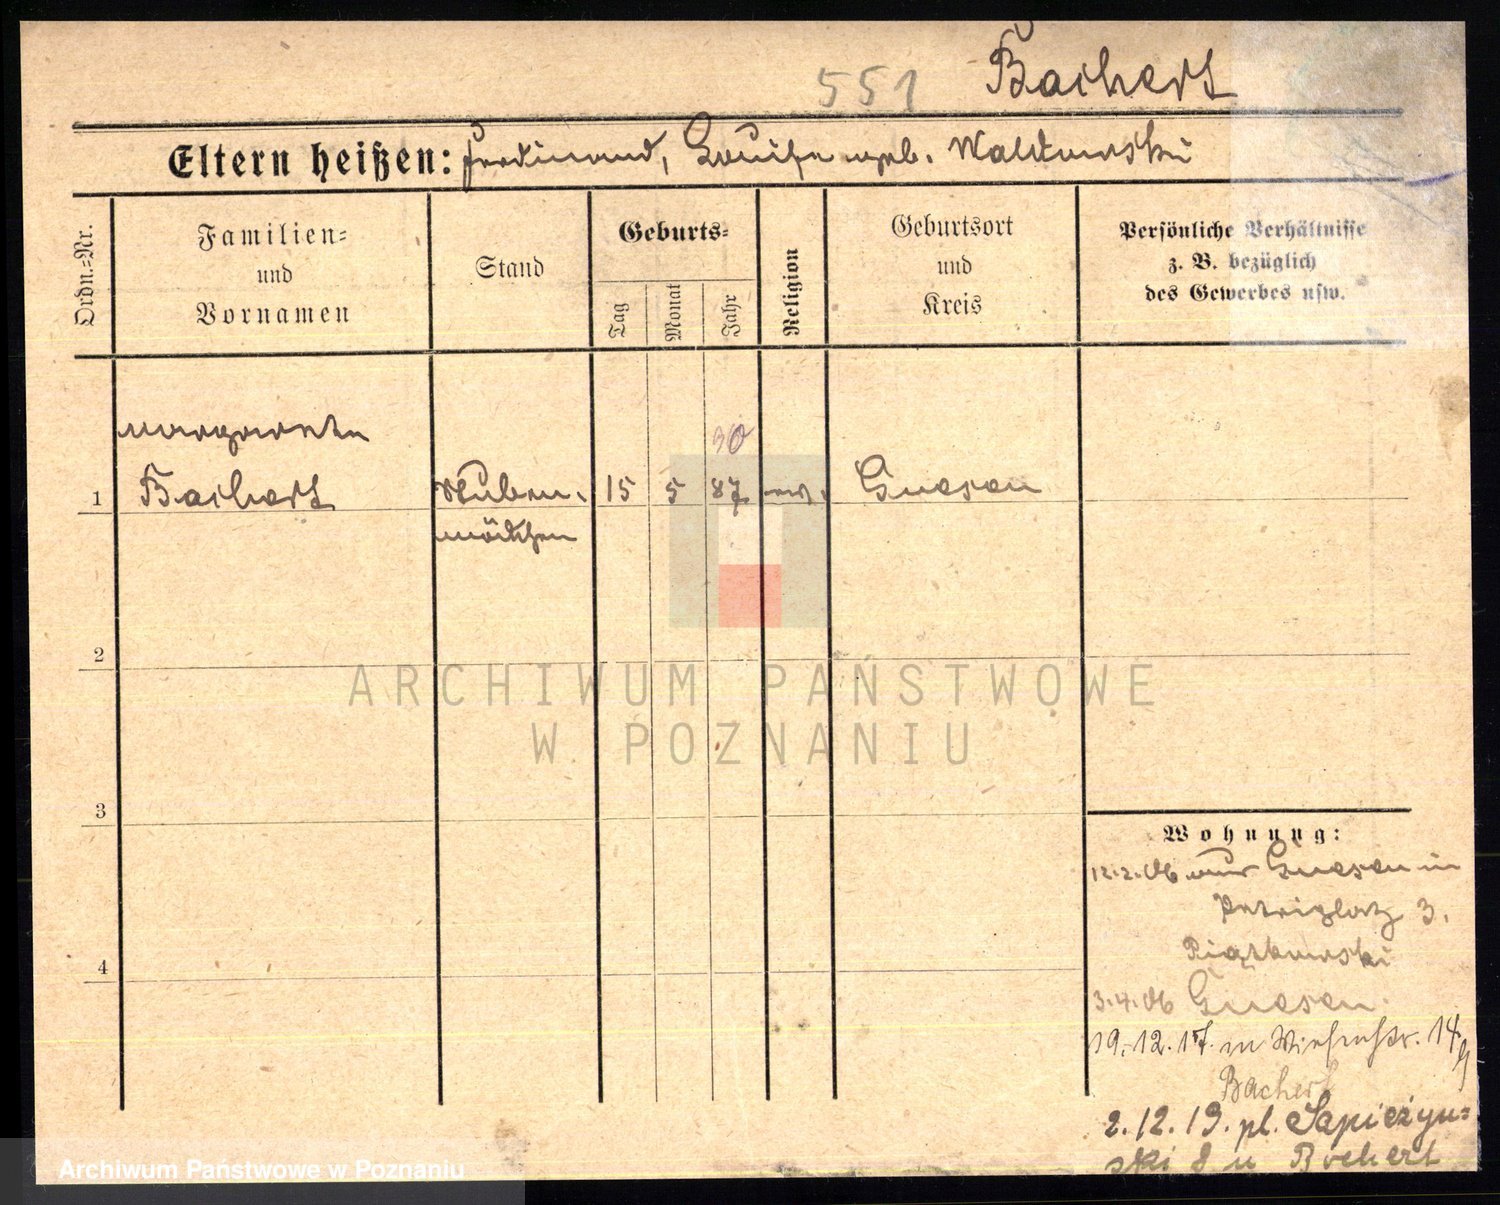 551 Bachert
Eltern heißen: Ferdinand, Louise geb. Waldowski
Ordn.=Nr.
Familien=
und
Vornamen
Stand
Geburts=
Tag
Monat
Jahr
Religion
Geburtsort
und
Kreis
Persönliche Verhältnisse
z. B. bezüglich
des Gewerbes usw.
Margarete
90
1 Bachert Stuben- 15 5 87 ev. Gnesen
mädchen
2
3
4
Wohnung:
12.2.06 von Gnesen in
Petriplatz 3.
Piątkowski
3.4.06 Gnesen.
19.12.17. Wiesenstr. 14
Bachert
2.12.19. pl. Sapieżyń=
ski 8 u Bochert
ARCHIWUM PAŃSTWOWE
W POZNANIU
Archiwum Państwowe w Poznaniu